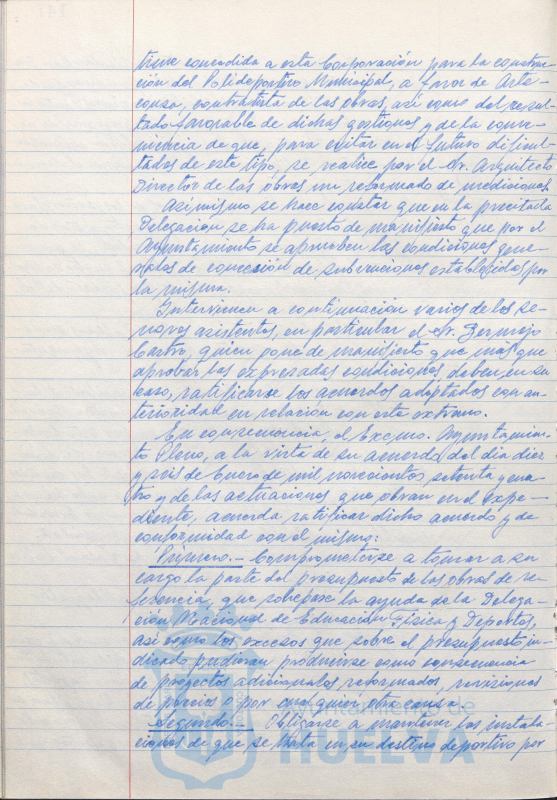 tiene concedida a esta Corporación para la construc-
ción del Polideportivo Municipal, a favor de Arte-
consa, contratista de las obras, así como del resul-
tado favorable de dichas gestiones y de la conve-
niencia de que, para evitar en el futuro dificul-
tades de este tipo, se realice por el Sr. Arquitecto
Director de las obras un reformado de mediciones.
Asimismo se hace constar que en la precitada
Delegación se ha puesto de manifiesto que por el
Ayuntamiento se aprueben las condiciones gene-
rales de concesión de subvenciones establecidas por
la misma.
Intervienen a continuación varios de los se-
ñores asistentes, en particular el Sr. Bermejo
Castro, quien pone de manifiesto que más que
aprobar las expresadas condiciones deben, en su
caso, ratificarse los acuerdos adoptados con an-
terioridad en relación con este extremo.
En consecuencia, el Excmo. Ayuntamien-
to Pleno, a la vista de su acuerdo del día diez
y seis de Enero de mil novecientos setenta y cua-
tro y de las actuaciones que obran en el expe-
diente, acuerda ratificar dicho acuerdo y de
conformidad con el mismo:
Primero.- Comprometerse a tomar a su
cargo la parte del presupuesto de las obras de re-
ferencia, que sobrepase la ayuda de la Delega-
ción Nacional de Educación Física y Deportes,
así como los excesos que sobre el presupuesto in-
dicado pudieran producirse como consecuencia
de proyectos adicionales, reformados, revisiones
de precios o por cualquier otra causa.
Segundo.- Obligarse a mantener las instala-
ciones de que se trata en su destino deportivo por
HUELVA